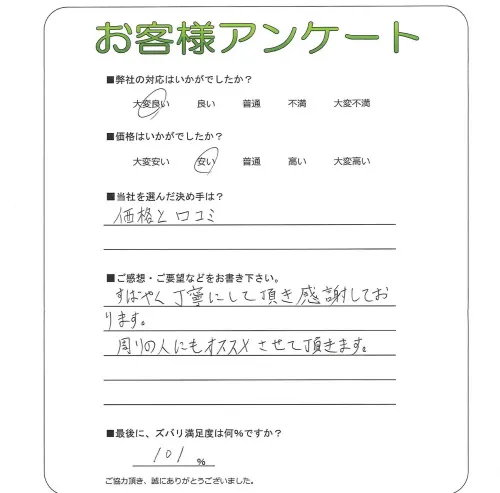 お客様アンケート
■弊社の対応はいかがでしたか?
大変良い 良い 普通 不満 大変不満
■価格はいかがでしたか?
大変安い 安い 普通 高い 大変高い
■当社を選んだ決め手は?
価格と口コミ
■ご感想・ご要望などをお書き下さい。
すばやく丁寧にして頂き感謝してお
ります。
周りの人にもオススメさせて頂きます。
■最後に、ズバリ満足度は何%ですか?
101 %
ご協力頂き、誠にありがとうございました。